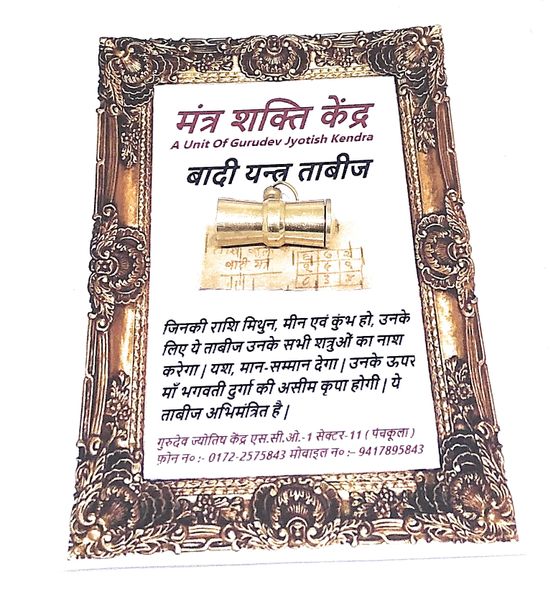 मंत्र शक्ति केंद्र
A Unit Of Gurudev Jyotish Kendra
बादी यन्त्र ताबीज
जिनकी राशि मिथुन, मीन एवं कुंभ हो, उनके
लिए ये ताबीज उनके सभी शत्रुओं का नाश
करेगा | यश, मान-सम्मान देगा | उनके ऊपर
माँ भगवती दुर्गा की असीम कृपा होगी | ये
ताबीज अभिमंत्रित है |
गुरुदेव ज्योतिष केंद्र एस.सी.ओ.-1 सेक्टर-11 ( पंचकूला )
फ़ोन न० :- 0172-2575843 मोबाइल न० :- 9417895843